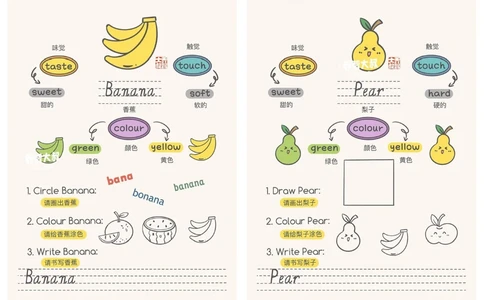 味觉
触觉
taste
touch
sweet
soft
甜的
软的
Banana
香蕉
colour
green
颜色
yellow
绿色
黄色
1. Circle Banana:
请圈出香蕉
bana
bonana
banana
2. Colour Banana:
请给香蕉涂色
3. Write Banana:
请书写香蕉
Banana
味觉
触觉
taste
touch
sweet
hard
甜的
硬的
Pear
梨子
colour
green
颜色
yellow
绿色
黄色
1. Draw Pear:
请画出梨子
2. Colour Pear:
请给梨子涂色
3. Write Pear:
请书写梨子
Pear